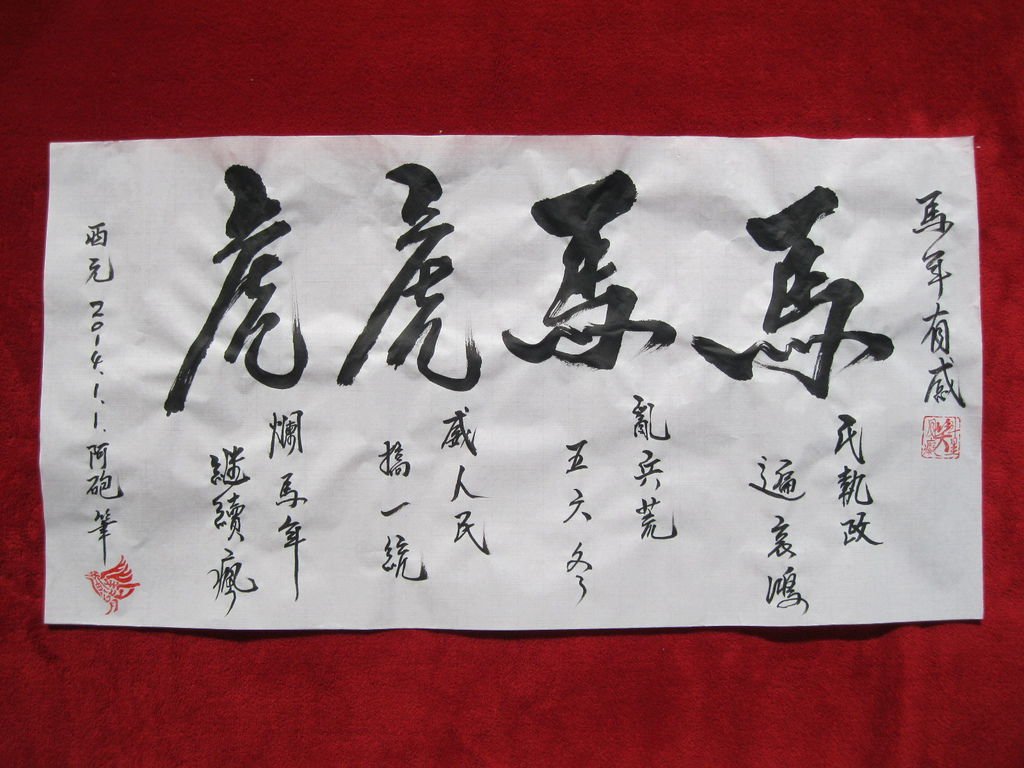 馬年有感
馬
氏執政
遍哀鴻
馬
亂兵荒
五六冬
虎
威人民
搞一統
虎
爛馬年
繼續瘋
西元 2014.1.1. 阿砲筆